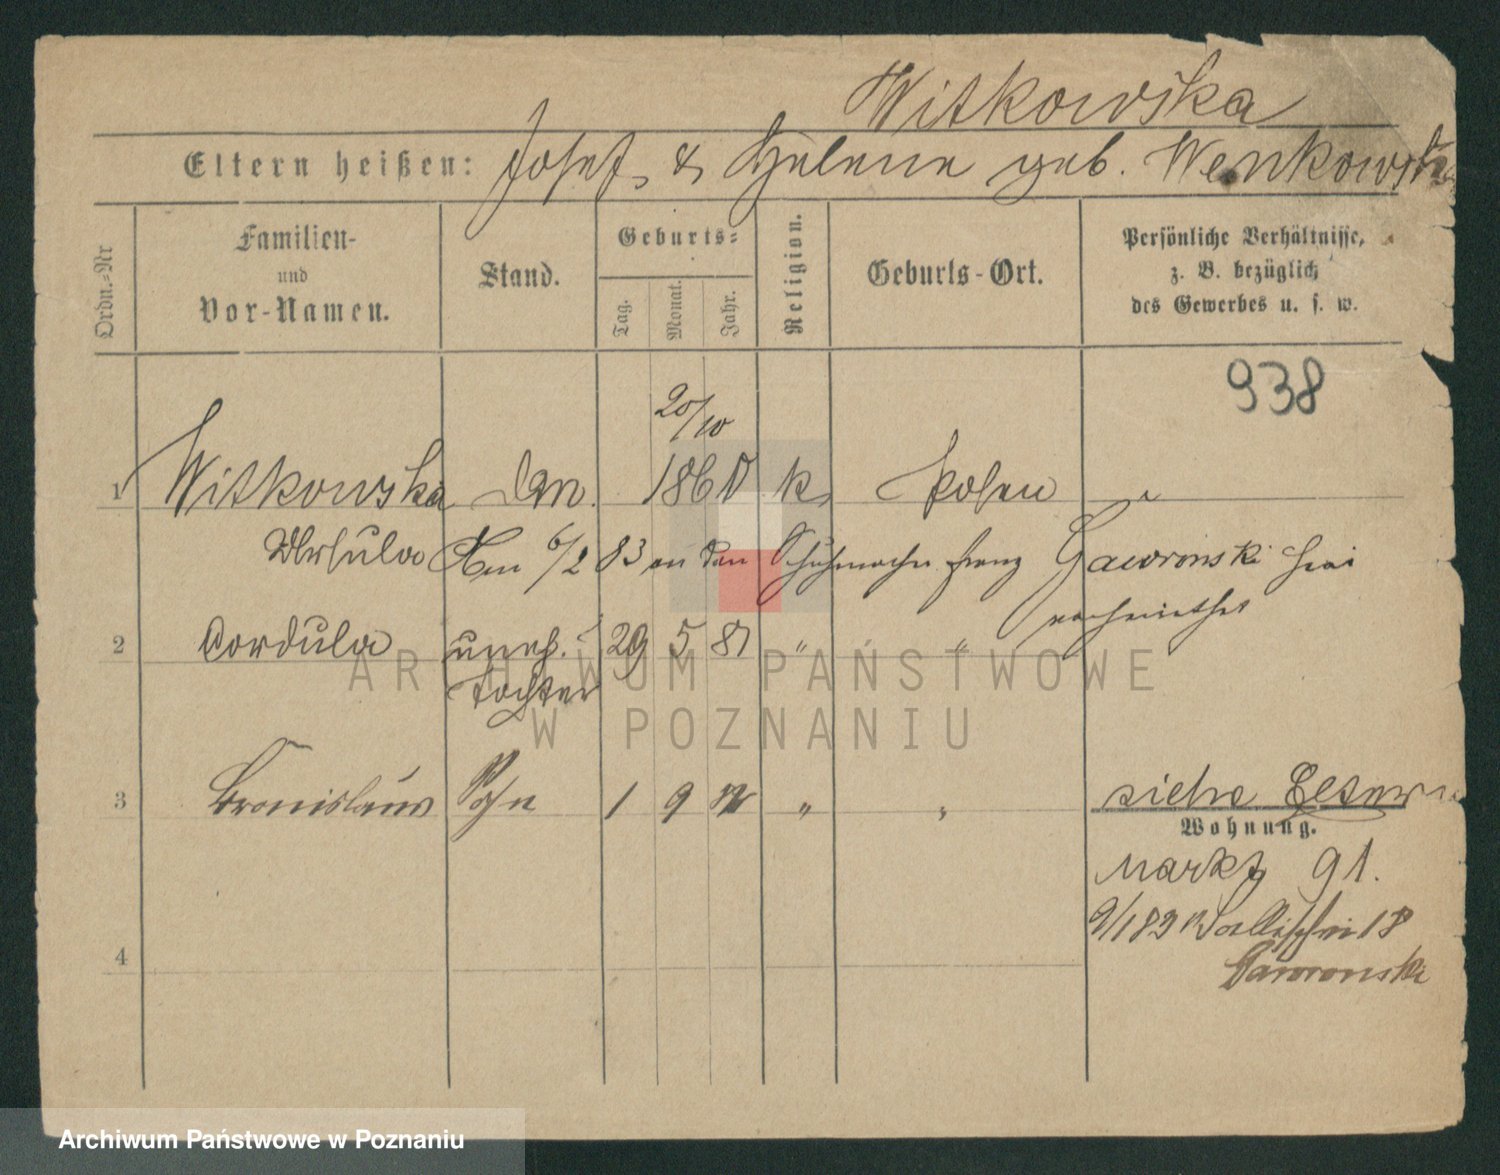 Witkowska
Eltern heißen: Josef & Helene geb. Wenkowska
Ordn.-Nr
Familien-
und
Vor-Namen.
Stand.
Geburts-
Tag.
Monat.
Jahr.
Religion.
Geburts-Ort.
Persönliche Verhältnisse,
z. B. bezüglich
des Gewerbes u. s. w.
938
20/10
1 Witkowska 1860 k. Posen
Ursula Am 6/2 83 an den Schuhmacher Franz Gawronski hier
verheirathet
2 Cordula uneh. 29 5 81 " "
Tochter
3 Bronislaus Sohn 1 9 82 " "
siehe Eltern
Wohnung.
Markt 91.
9/1 83 Wallischei 18
Gawronski
4
ARCHIWUM PAŃSTWOWE
W POZNANIU
Archiwum Państwowe w Poznaniu